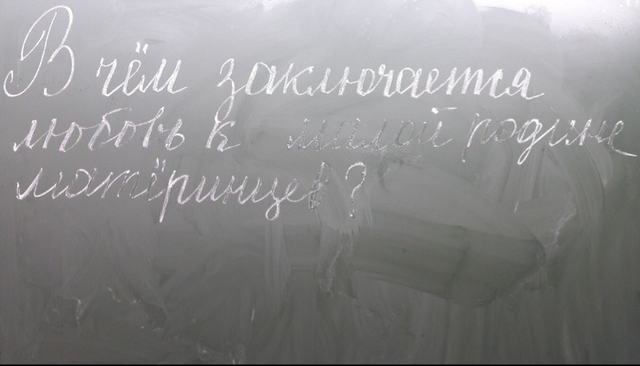 В чём заключается
любовь к малой родине
матёринцев?